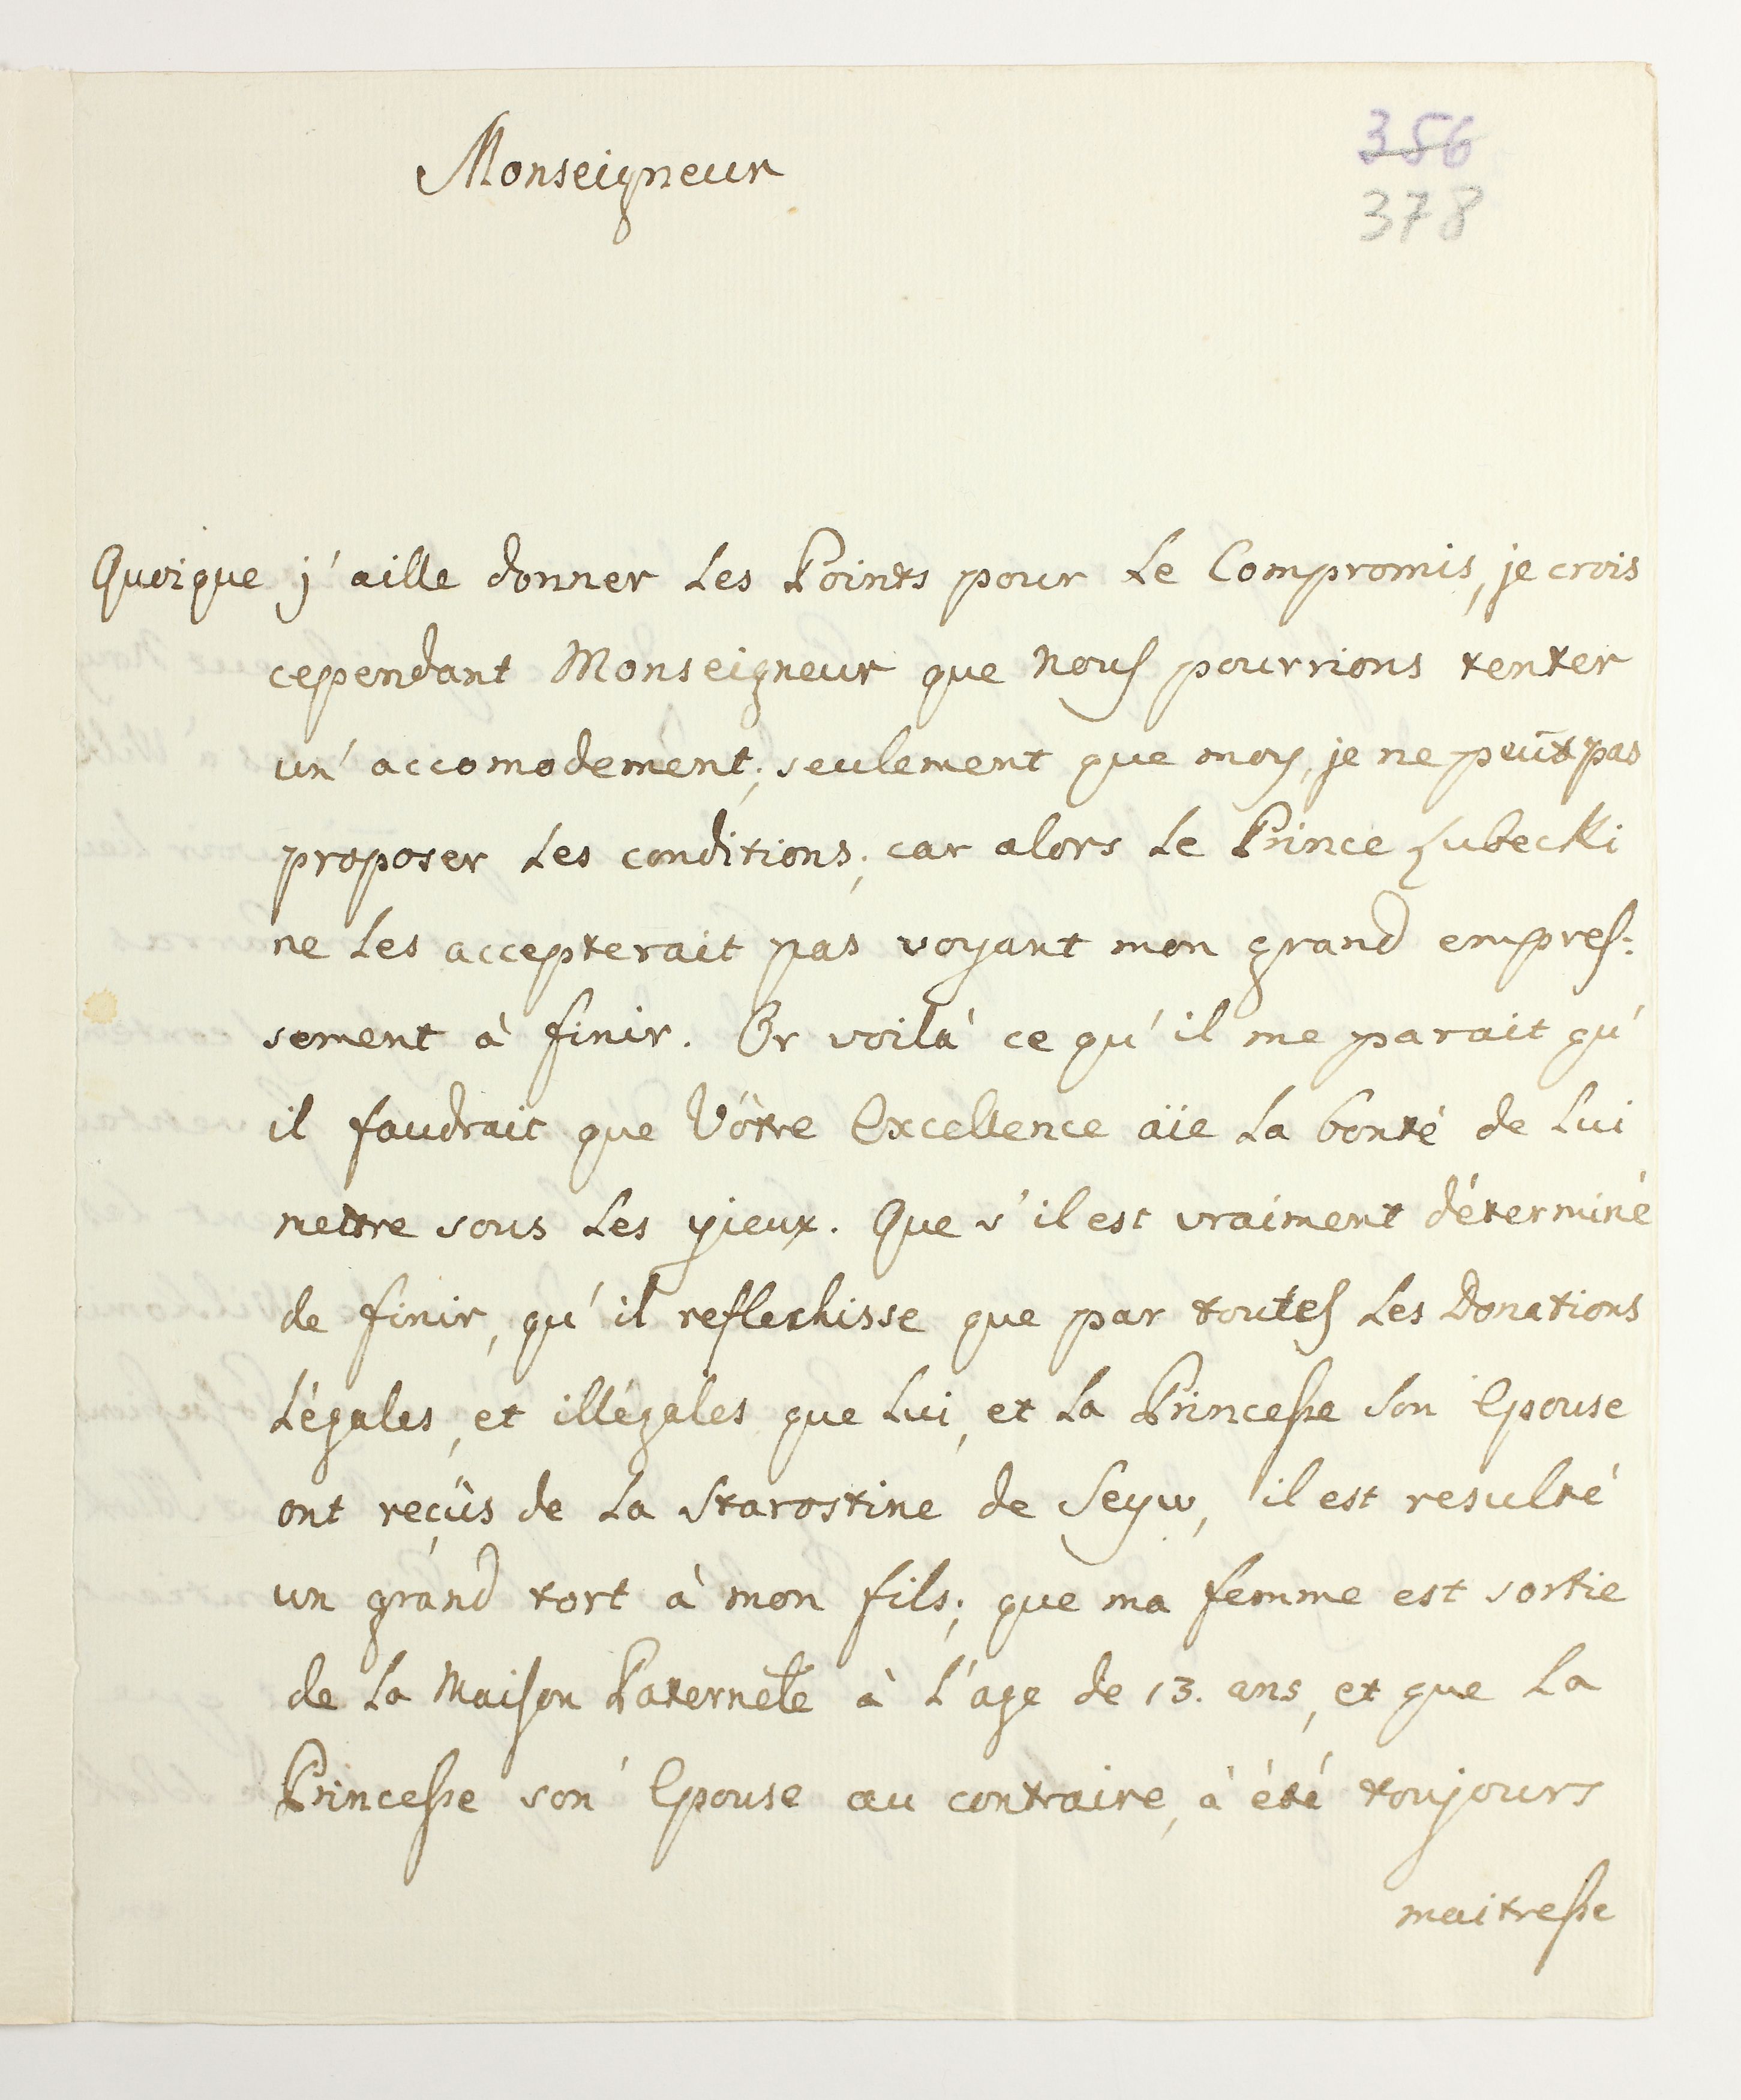 Monseigneur
356
378
Quoique j'aille donner Les Points pour Le Compromis, je crois
cependant Monseigneur que Nous pourrions tenter
un' accomodement; seulement que moy, je ne peut pas
proposer Les conditions; car alors Le Prince Lubecki
ne Les accepterait pas voyant mon grand empres:
sement à finir. Or voilà ce qu'il me parait qu'
il faudrait que Vôtre Excellence aïe La bonté de Lui
mettre sous Les yieux. Que s'il est vraiment déterminé
de finir, qu'il reflechisse que par toutes Les Donations
Légales, et illégales que Lui, et La Princesse Son Epouse
ont reçûs de La Starostine de Seyw, il est resulté
un grand tort à mon fils; que ma femme est sortie
de La Maison Paternelle à L'age de 13. ans, et que La
Princesse son' Epouse au contraire, à été toujours
maitresse